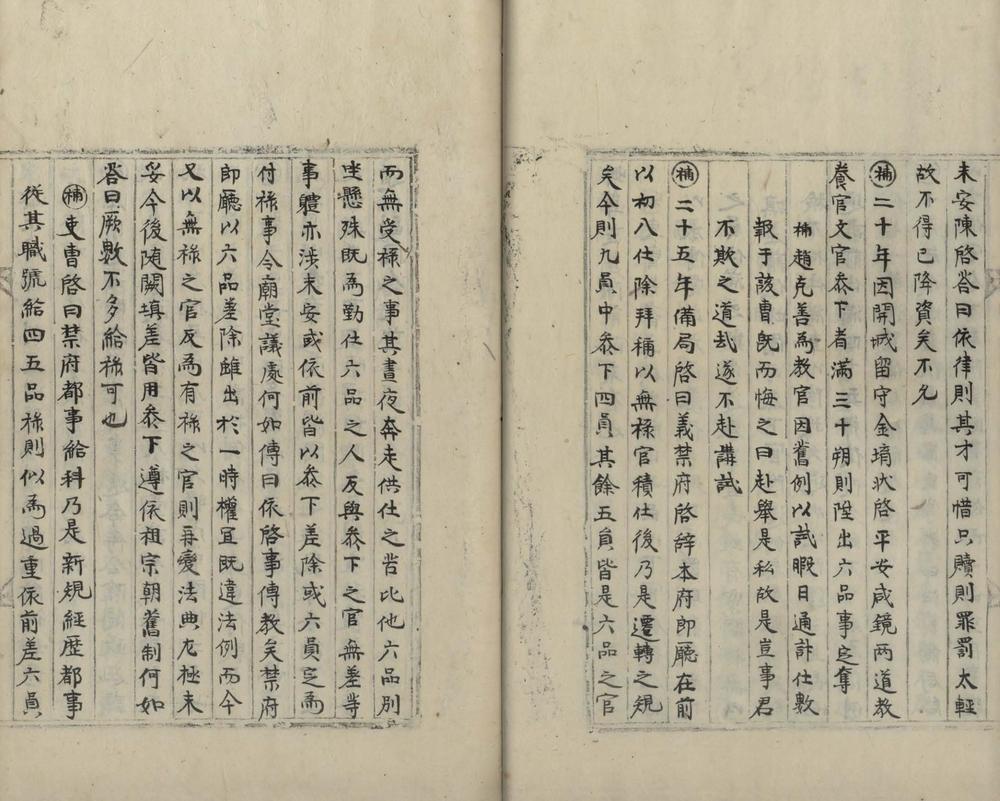 未安陳啓答曰依律則其才可惜只贖則罪罰太輕
故不得已降資矣不允
補二十年因開城留守金堉狀啓平安咸鏡兩道教
養官文官參下者滿三十朔則陞出六品事定奪
補趙克善爲教官因舊例以試暇日通計仕數
報于該曹旣而悔之曰赴擧是私故是豈事君
不欺之道哉遂不赴講試
補二十五年備局啓曰義禁府啓辭本府郎廳在前
以初入仕除拜稱以無祿官積仕後乃是遷轉之規
矣今則九員中參下四員其餘五員皆是六品之官
而無受祿之事其晝夜奔走供仕之苦比他六品別
坐懸殊旣爲勤仕六品之人反與參下之官無差等
事體亦涉未安或依前皆以參下差除或六員定爲
付祿事令廟堂議處何如傳曰依啓事傳教矣禁府
郎廳以六品差除雖出於一時權宜旣違法例而今
又以無祿之官反爲有祿之官則再變法典尤極未
妥今後隨闕填差皆用參下遵依祖宗朝舊制何如
答曰厥數不多給祿可也
補吏曹啓曰禁府都事給科乃是新規經歷都事
從其職號給四五品祿則似爲過重依前差六員